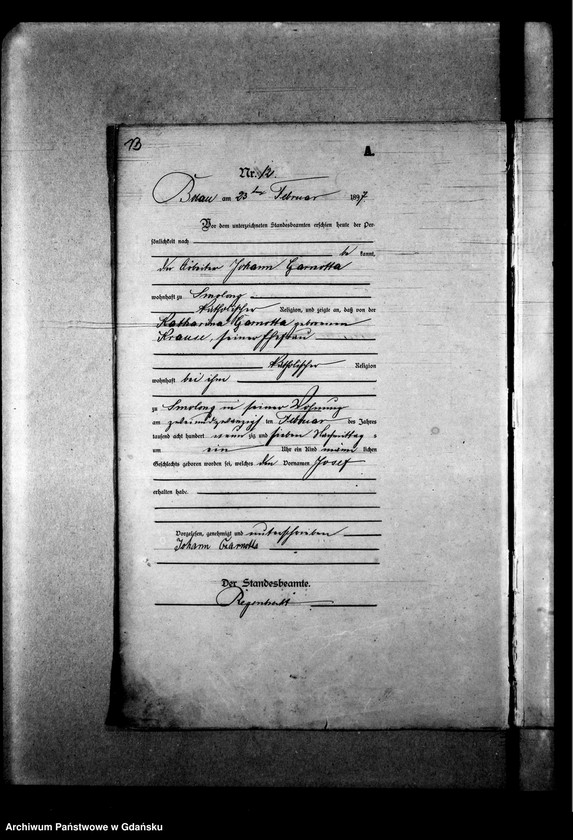 13
A.
Nr. 12.
am 23ten Februar 1897
Vor dem unterzeichneten Standesbeamten erschien heute der Per-
sönlichkeit nach
be kannt,
der Arbeiter Johann Czarnotta
wohnhaft zu Smolong
katholischer Religion, und zeigte an, daß von der
Katharina Czarnotta geborenen
Krause, seiner Ehefrau
katholischer Religion
wohnhaft bei ihm
zu Smolong in seiner Wohnung
am zweiundzwanzigsten Februar des Jahres
tausend acht hundert neunzig und sieben Nachmittag s
um ein Uhr ein Kind männ lichen
Geschlechts geboren worden sei, welches den Vornamen Josef
erhalten habe.
Vorgelesen, genehmigt und unterschrieben
Johann Czarnotta
Der Standesbeamte.
Archiwum Państwowe w Gdańsku